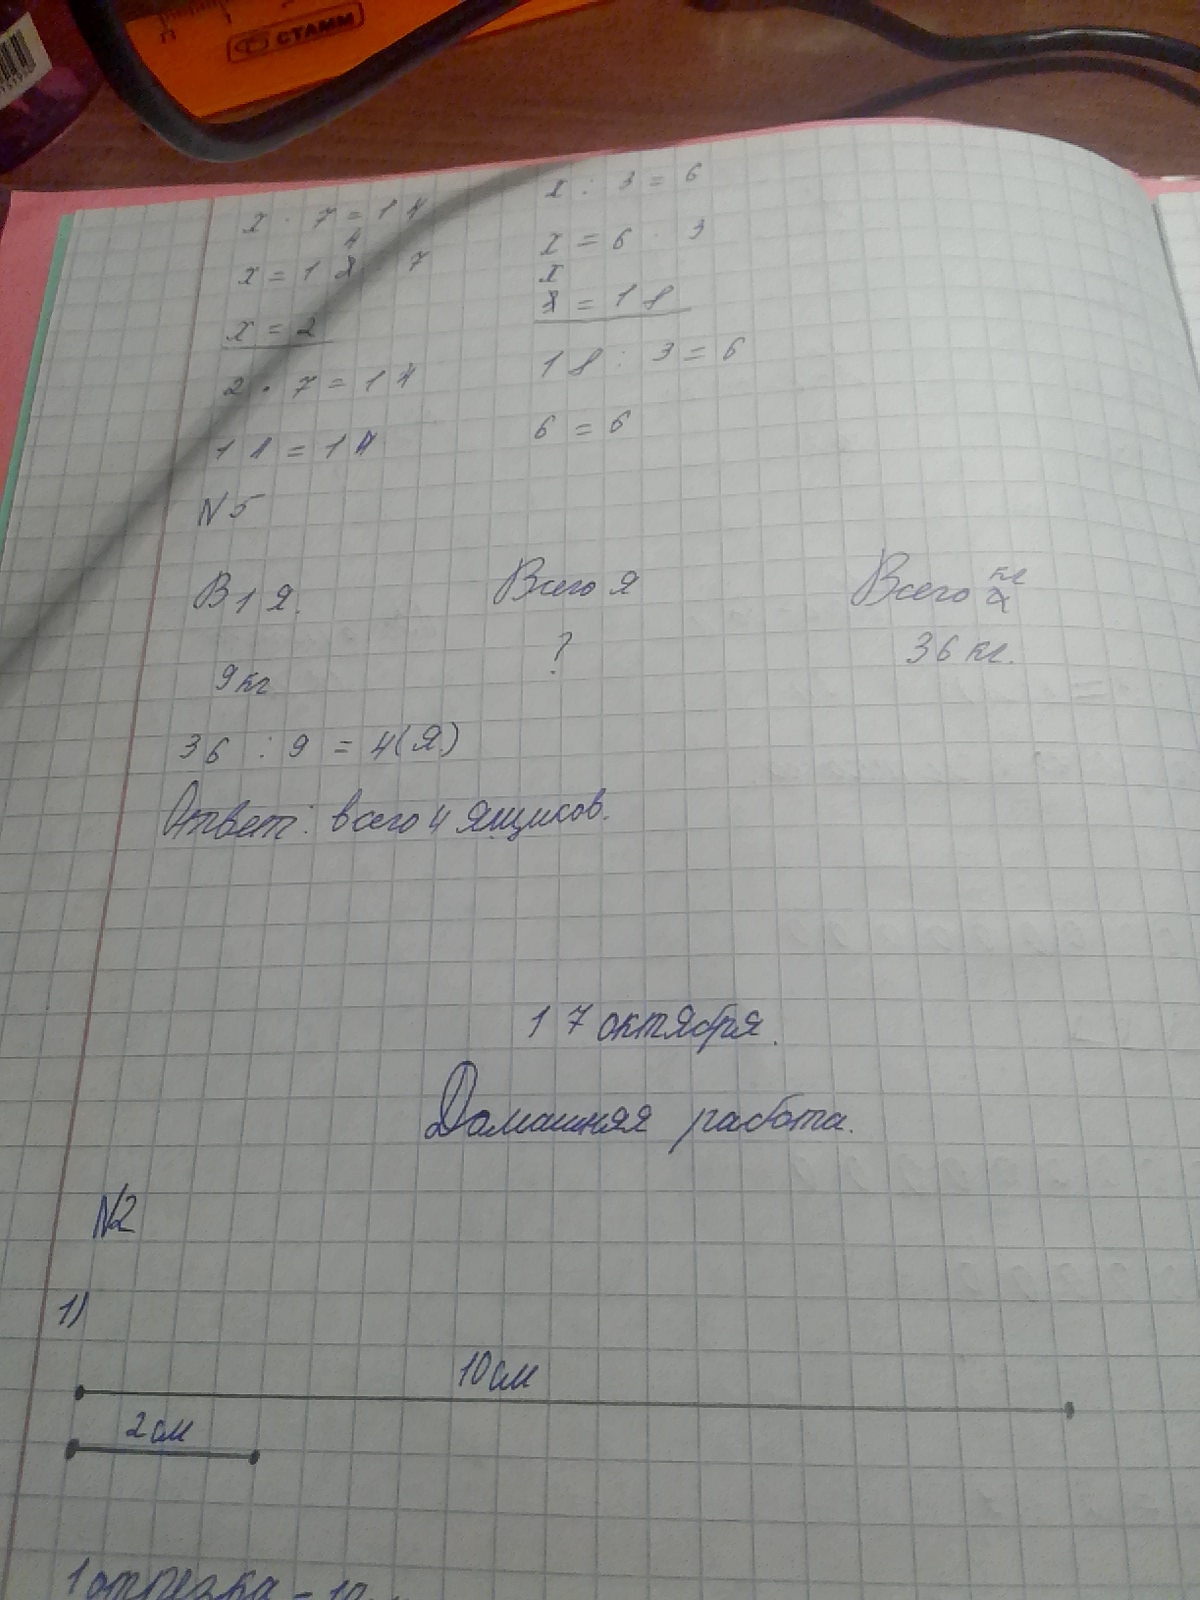 СТАММ
x · 7 = 14
x = 14 : 7
x = 2
2 · 7 = 14
14 = 14
x : 3 = 6
x = 6 · 3
x = 18
18 : 3 = 6
6 = 6
N 5
В 1 Я. Всего Я Всего кг
9 кг ? 36 кг.
36 : 9 = 4 (Я.)
Ответ: всего 4 ящиков.
17 октября.
Домашняя работа.
N2
1)
10 см
2 см
1 отрезка - 10